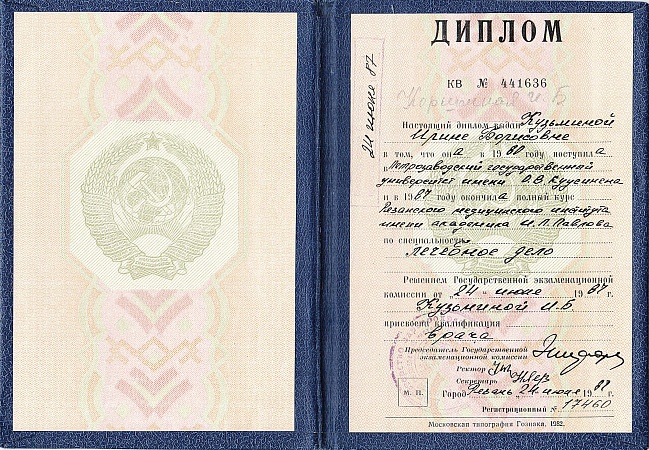 ДИПЛОМ
КВ № 441636
Настоящий диплом выдан Кузьминой
Ирине Борисовне
в том, что она в 1980 году поступила
в Петрозаводский государственный
университет имени О.В. Куусинена
и в 1987 году окончила полный курс
Рязанского медицинского института
имени академика И.П. Павлова
по специальности
лечебное дело
Решением Государственной экзаменационной
комиссии от "24" июня 1987 г.
Кузьминой И.Б.
присвоена квалификация
врача
Председатель Государственной
экзаменационной комиссии
Ректор
Секретарь
М. П. Город Рязань 24 июня 1987
Регистрационный № 17460
Московская типография Гознака. 1982.
24 июня 87